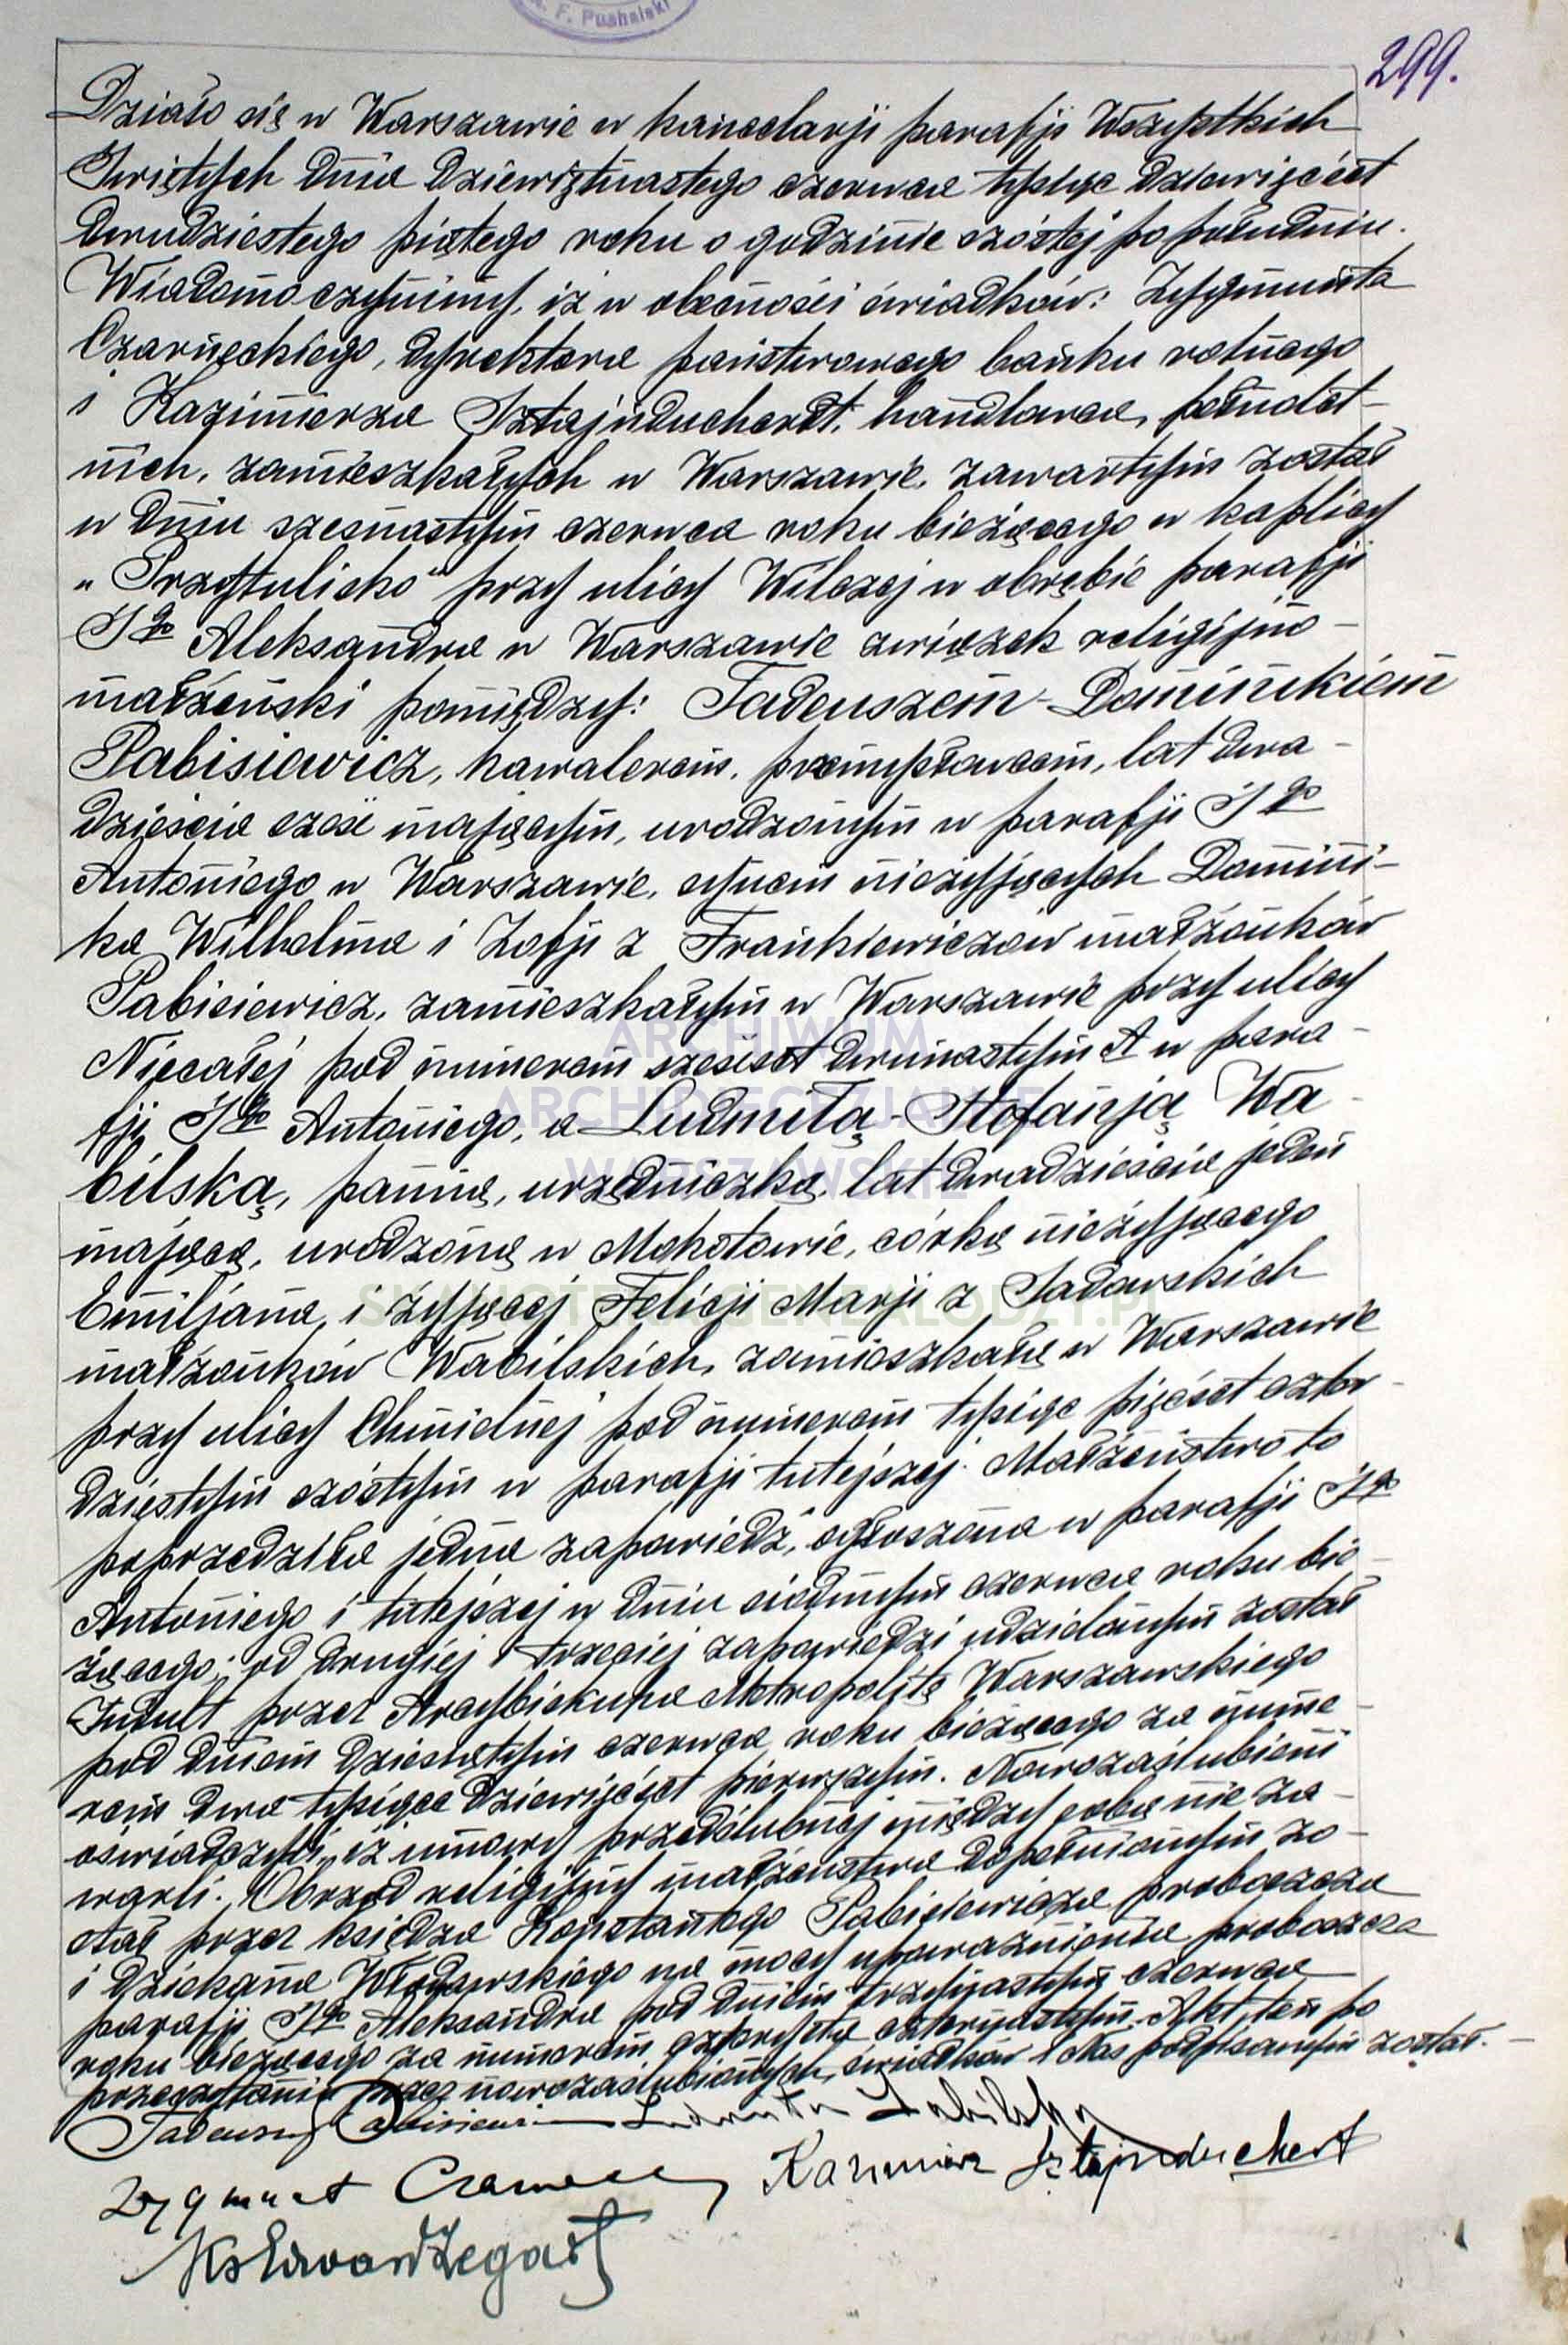 F. Puchalski
299.
Działo się w Warszawie w kancelarji parafji Wszystkich
Świętych dnia dziewiętnastego czerwca tysiąc dziewięćset
dwudziestego piątego roku o godzinie szóstej po południu.
Wiadomo czynimy, iż w obecności świadków: Zygmunta
Czarneckiego, dyrektora państwowego banku rolnego
i Kazimierza Sztajnducherdt, handlowca, pełnolet-
nich, zamieszkałych w Warszawie, zawartym został
w dniu szesnastym czerwca roku bieżącego w kaplicy
„Przytulisko" przy ulicy Wilczej w obrębie parafji
Śgo Aleksandra w Warszawie związek religijno-
małżeński pomiędzy: Tadeuszem-Dominikiem
Pabisiewicz, kawalerem, przemysłowcem, lat dwa-
dzieścia sześć mającym, urodzonym w parafji Śgo
Antoniego w Warszawie, synem nieżyjących Domini-
ka Wilhelma i Zofji z Frankiewiczów małżonków
Pabisiewicz, zamieszkałym w Warszawie przy ulicy
Niecałej pod numerem sześćset dwunastym A w para-
fji Śgo Antoniego, a Ludmiłą-Stefanją Wa-
bilską, panną, urzędniczką, lat dwadzieścia jeden
mającą, urodzoną w Mokotowie, córką nieżyjącego
Emiljana i żyjącej Felicji Marji z Sadowskich
małżonków Wabilskich, zamieszkałą w Warszawie
przy ulicy Chmielnej pod numerem tysiąc pięćset czter-
dziestym szóstym w parafji tutejszej. Małżeństwo to
poprzedziła jedna zapowiedź, ogłoszona w parafji Śgo
Antoniego i tutejszej w dniu siódmym czerwca roku bie-
żącego; od drugiej i trzeciej zapowiedzi udzielonym został
Indult przez Arcybiskupa Metropolitę Warszawskiego
pod dniem dziesiątym czerwca roku bieżącego za nume-
rem dwa tysiące dziewięćset pierwszym. Nowozaślubieni
oświadczyli, iż umowy przedślubnej między sobą nie za-
warli. Obrzęd religijny małżeństwa dopełnionym zo-
stał przez księdza Konstantego Pabisiewicza proboszcza
i dziekana Włodawskiego na mocy upoważnienia proboszcza
parafji Śgo Aleksandra pod dniem trzynastym czerwca
roku bieżącego za numerem czterysta czternastym. Akt ten po
przeczytaniu przez nowozaślubionych, świadków i Nas podpisanym został.
Tadeusz Pabisiewicz Ludmiła Wabilska
Zygmunt Czarnecki Kazimierz Sztajnduchert
Ks Edward Żegart
ARCHIWUM
ARCHIDIECEZJALNE
WARSZAWSKIE